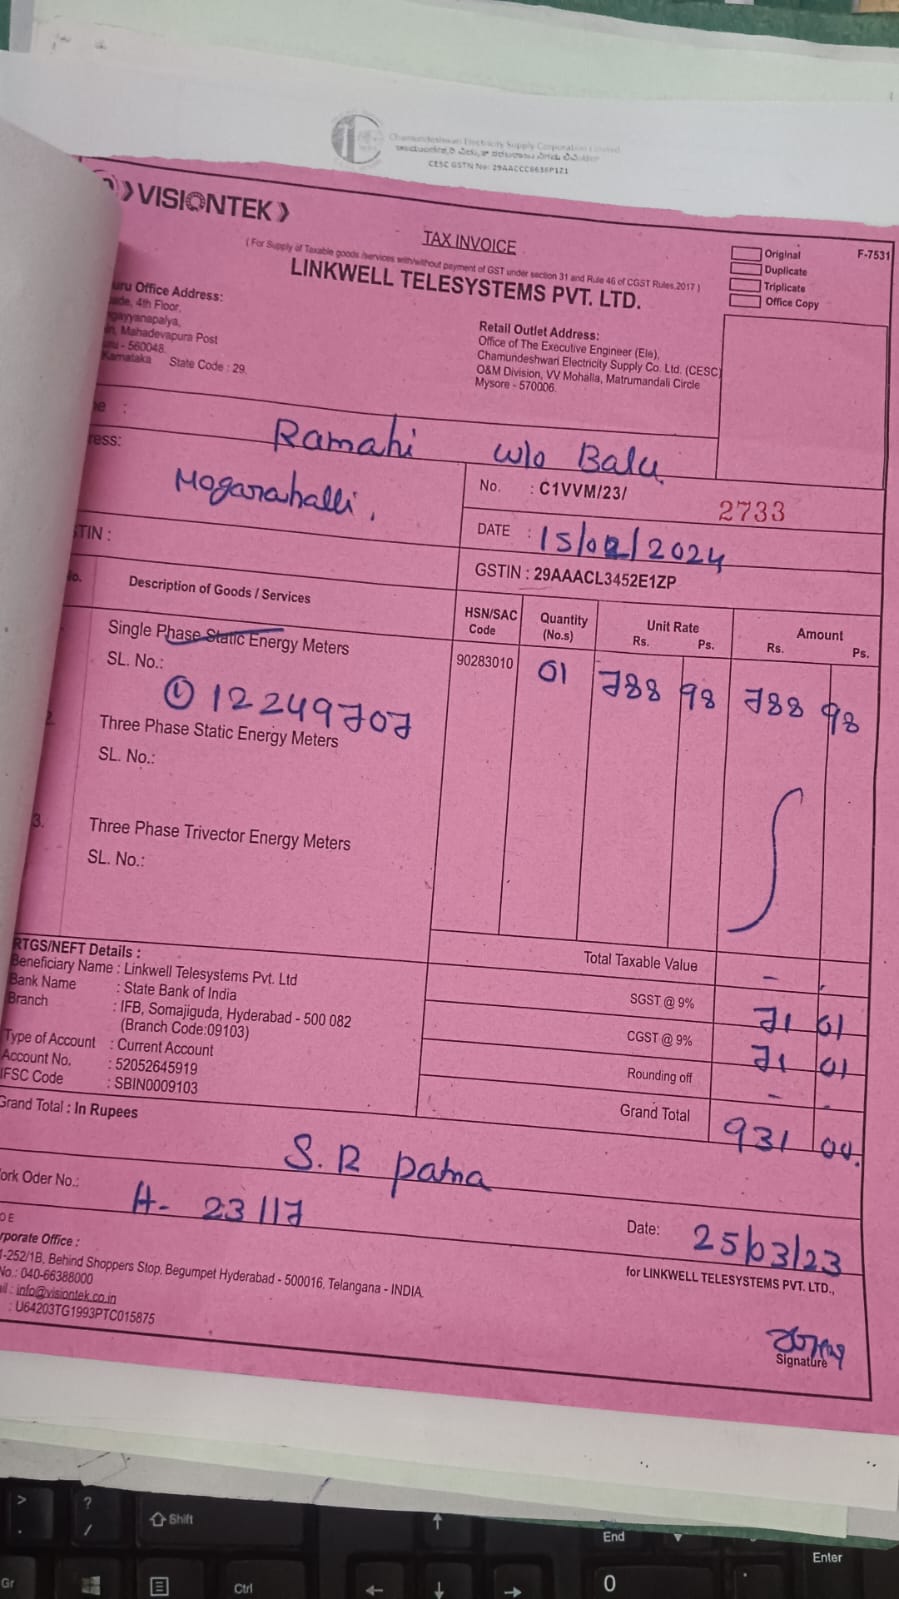 Chamundeshwari Electricity Supply Corporation Limited
CESC GSTN No: 29AACCC6636P1Z1
VISIONTEK
TAX INVOICE
( For Supply of Taxable goods /services with/without payment of GST under section 31 and Rule 46 of CGST Rules,2017 )
LINKWELL TELESYSTEMS PVT. LTD.
Original
Duplicate
Triplicate
Office Copy
F-7531
uru Office Address:
ade, 4th Floor,
gayyanapalya,
in, Mahadevapura Post
uru - 560048.
Karnataka State Code : 29.
Retail Outlet Address:
Office of The Executive Engineer (Ele),
Chamundeshwari Electricity Supply Co. Ltd. (CESC)
O&M Division, VV Mohalla, Matrumandali Circle
Mysore - 570006.
ne : Ramahi w/o Balu
ress: Mogarahalli,
No. : C1VVM/23/ 2733
DATE : 15/02/2024
STIN :
GSTIN : 29AAACL3452E1ZP
No. Description of Goods / Services HSN/SAC Code Quantity (No.s) Unit Rate Rs. Ps. Amount Rs. Ps.
Single Phase Static Energy Meters 90283010 01 788 98 788 98
SL. No.:
① 12249707
2. Three Phase Static Energy Meters
SL. No.:
3. Three Phase Trivector Energy Meters
SL. No.:
RTGS/NEFT Details :
Beneficiary Name : Linkwell Telesystems Pvt. Ltd
Bank Name : State Bank of India
Branch : IFB, Somajiguda, Hyderabad - 500 082
(Branch Code:09103)
Type of Account : Current Account
Account No. : 52052645919
IFSC Code : SBIN0009103
Total Taxable Value -
SGST @ 9% 71 01
CGST @ 9% 71 01
Rounding off -
Grand Total 931 00.
Grand Total : In Rupees
S.R patna
ork Oder No.: H- 23117
Date: 25/03/23
O E
rporate Office :
1-252/1B, Behind Shoppers Stop, Begumpet Hyderabad - 500016, Telangana - INDIA.
No.: 040-66388000
ail : info@visiontek.co.in
: U64203TG1993PTC015875
for LINKWELL TELESYSTEMS PVT. LTD.,
Signature
> ? Shift ↑ End Enter
. / Gr Ctrl ← ↓ → 0 .